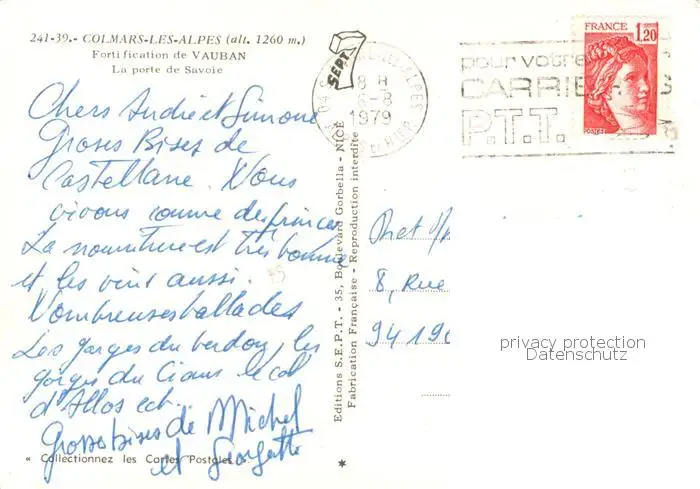 241-39.- COLMARS-LES-ALPES (alt. 1260 m.)
Fortification de VAUBAN
La porte de Savoie
Chers Andrée et Simone
Groses Bises de
Castellane. Nous
vivons comme des princes
La nourriture est très bonne
et les vins aussi.
Nombreuses ballades
Les gorges du verdon, les
gorges du Cians le col
d'Allos ect.
Grosses bises de Michel
et Georgette
« Collectionnez les Cartes Postales ».
SEPT
Editions S.E.P.T. - 35, Boulevard Gorbella - NICE
Fabrication Française - Reproduction interdite
8 H
6-8
1979
pour votre
CARRIE
P.T.T.
FRANCE
1,20
POSTES
8, Rue
94190
privacy protection
Datenschutz